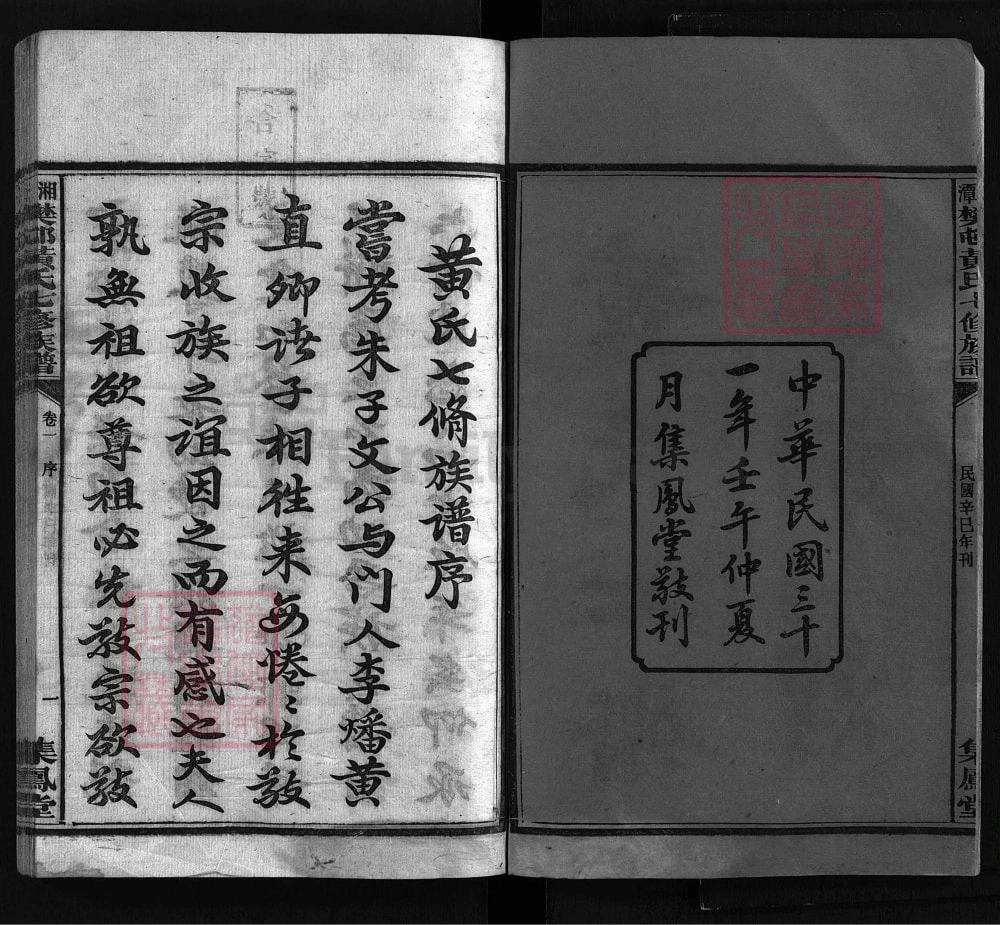 潭樊邨黃氏七修族譜
民國辛巳年刊
集鳳堂
中華民國三十
一年壬午仲夏
月集鳳堂敬刊
黃氏七脩族譜序
嘗考朱子文公与门人李燔黃
直卿诸子相往来每惓〻於敬
宗收族之誼因之而有感也夫人
孰無祖欲尊祖必先敬宗欲敬
湘
樊邨黃氏七修族譜
卷一
序
一
集鳳堂